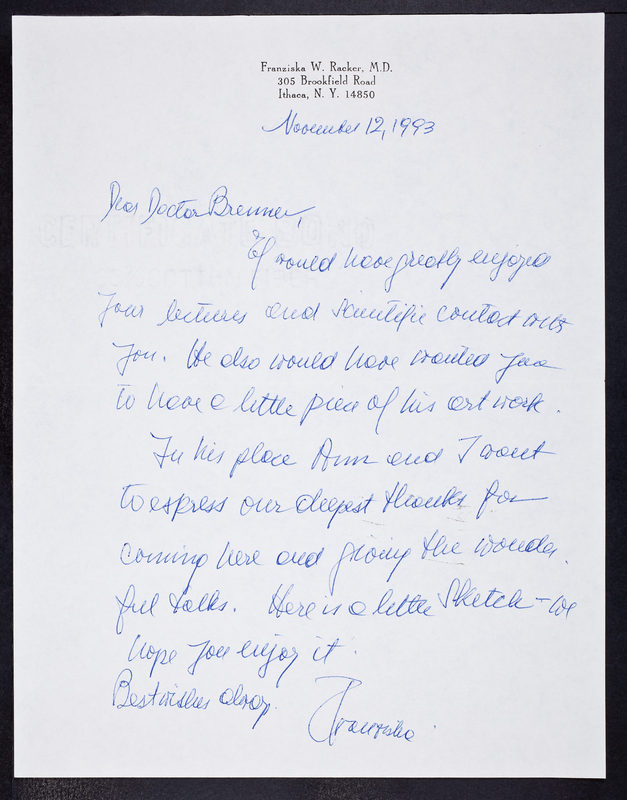 Franziska W. Racker, M.D.
305 Brookfield Road
Ithaca, N. Y. 14850
November 12, 1993
Dear Doctor Brenner,
Ef would have greatly enjoyed
your lectures and scientific contact with
you. He also would have wanted you
to have a little piece of his art work.
In his place Ann and I want
to express our deepest thanks for
coming here and giving the wonder-
ful talks. Here is a little sketch - we
hope you enjoy it.
Best wishes always.
Franziska